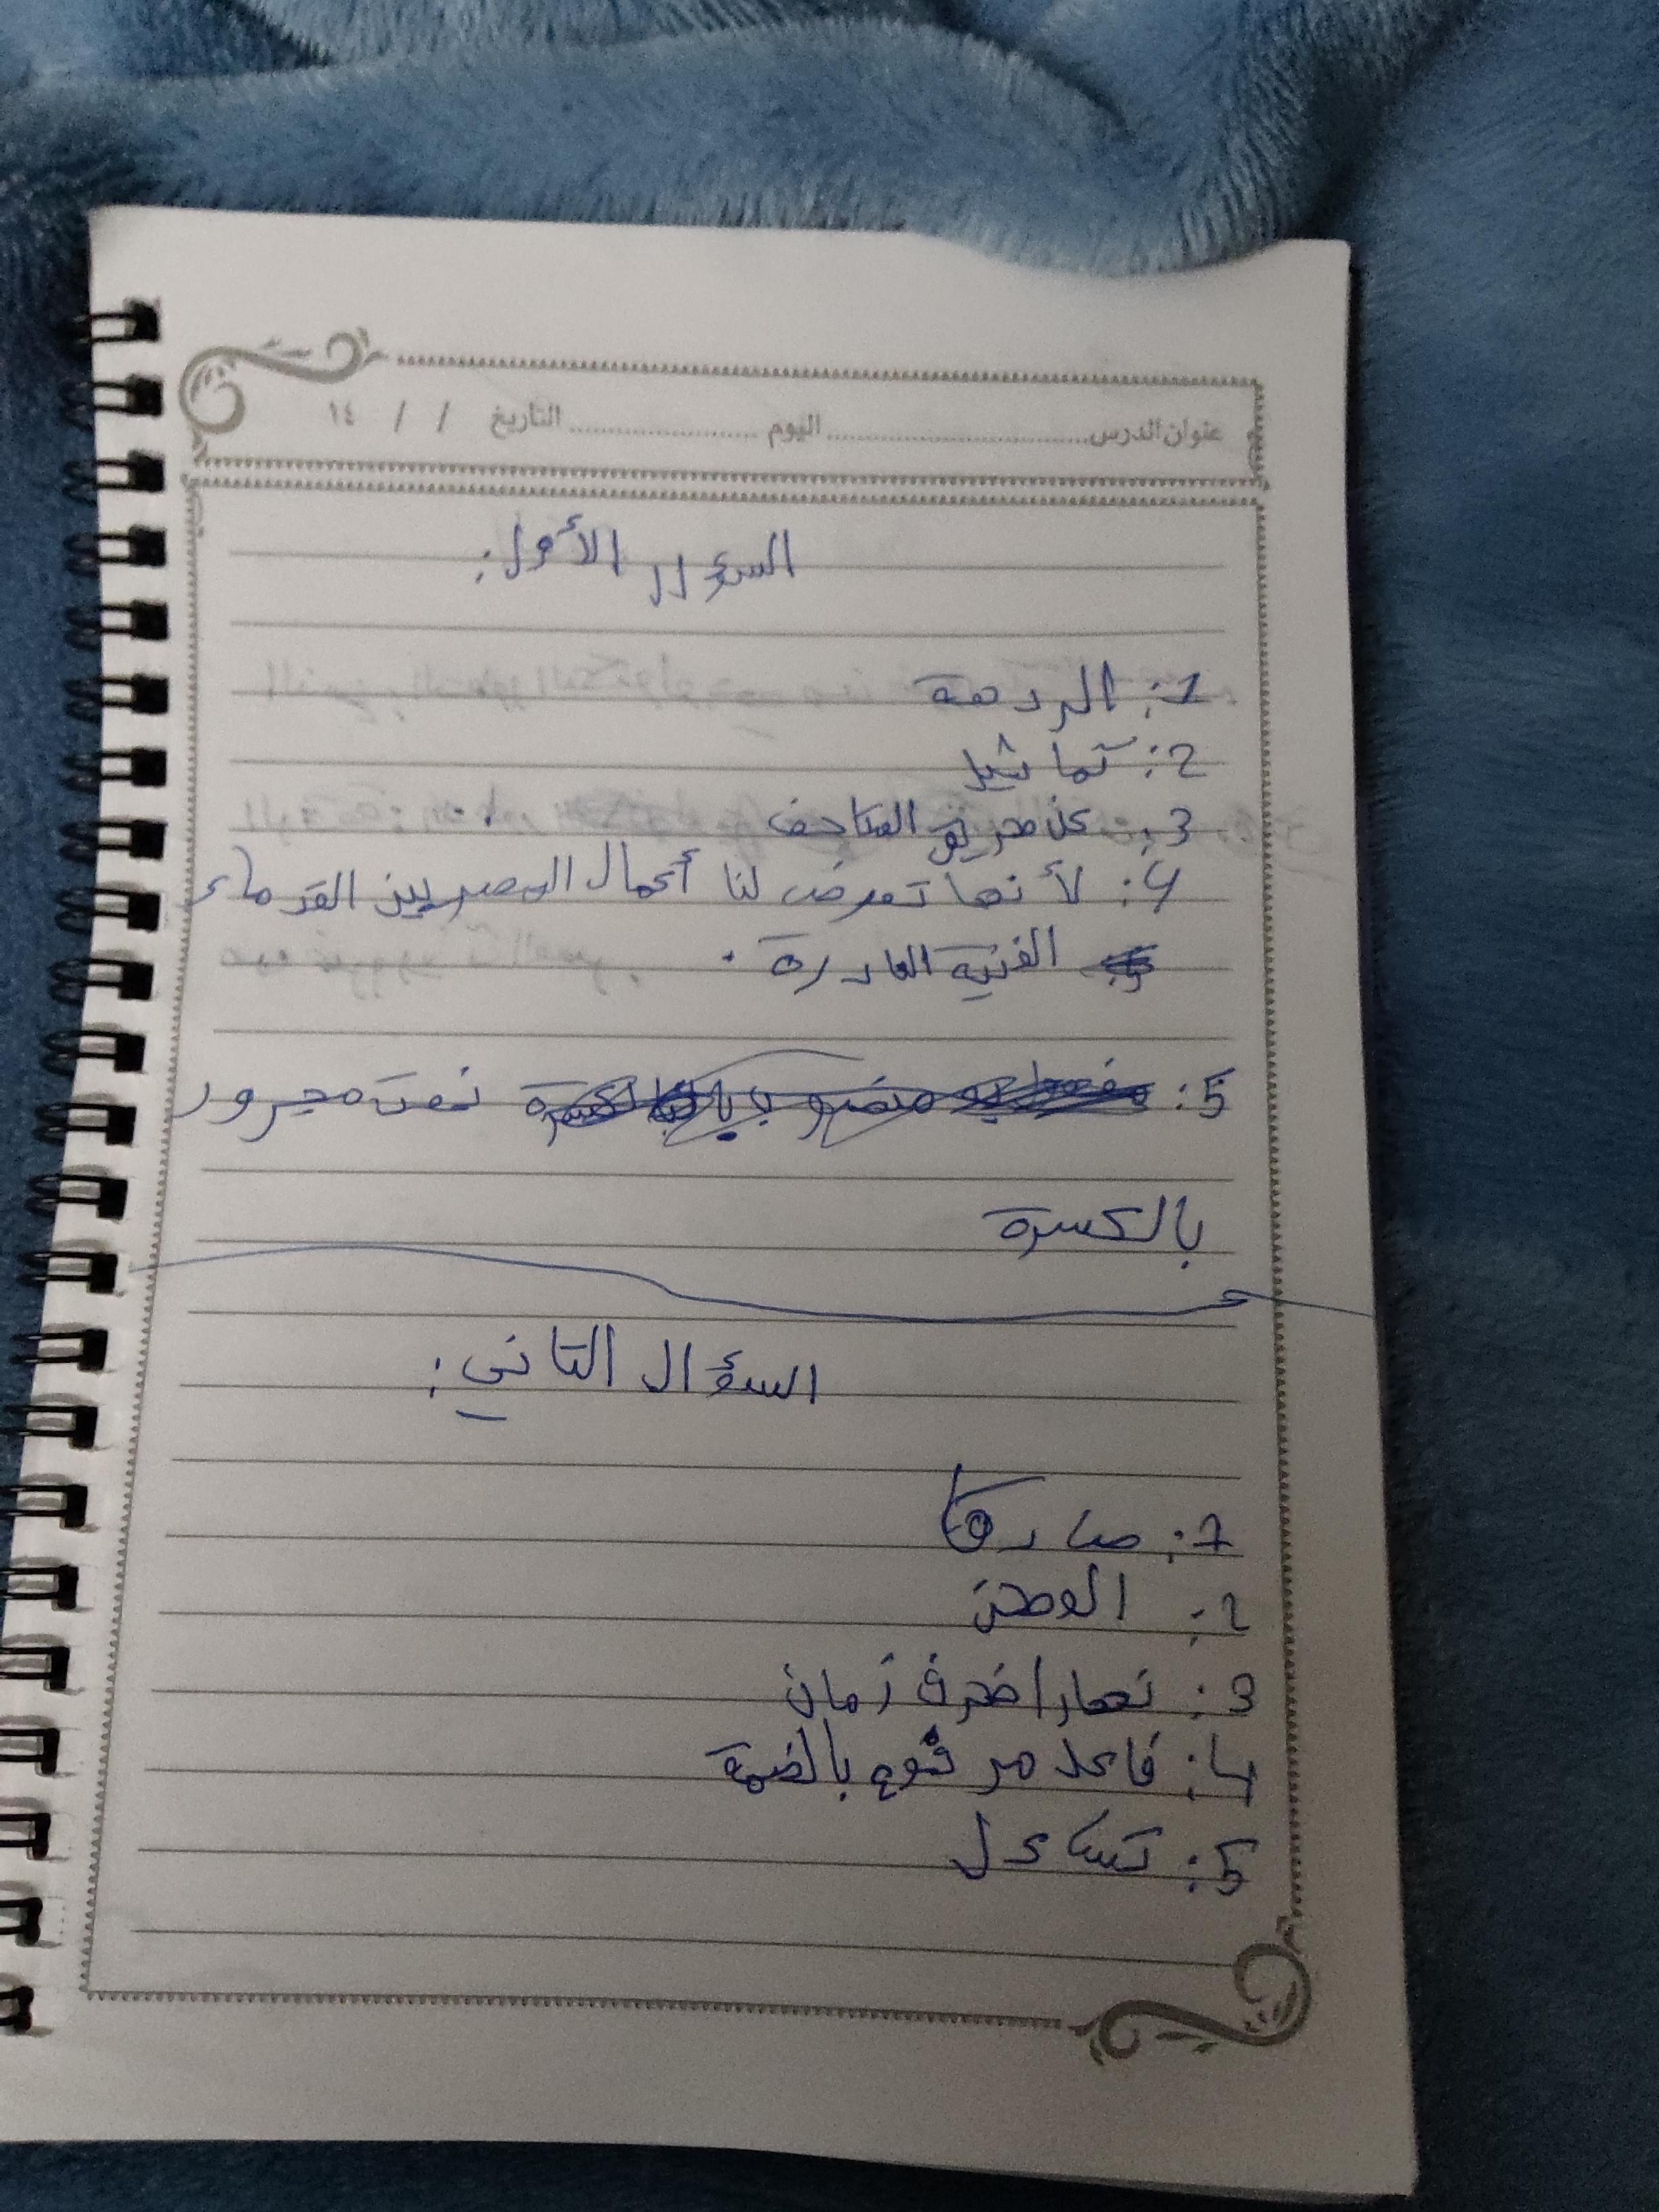 عنوان الدرس ............ اليوم ............ التاريخ / / ١٤
السؤال الأول:
1: الردهة
2: تماثيل
3: عن طريق المتاحف
4: لأنها تعرض لنا أعمال المصريين القدماء
الفنية النادرة.
5: نعت مجرور
بالكسرة
السؤال الثاني:
1: صادقا
2: الوطن
3: نهارا ظرف زمان
4: فاعل مرفوع بالضمة
5: تساءل